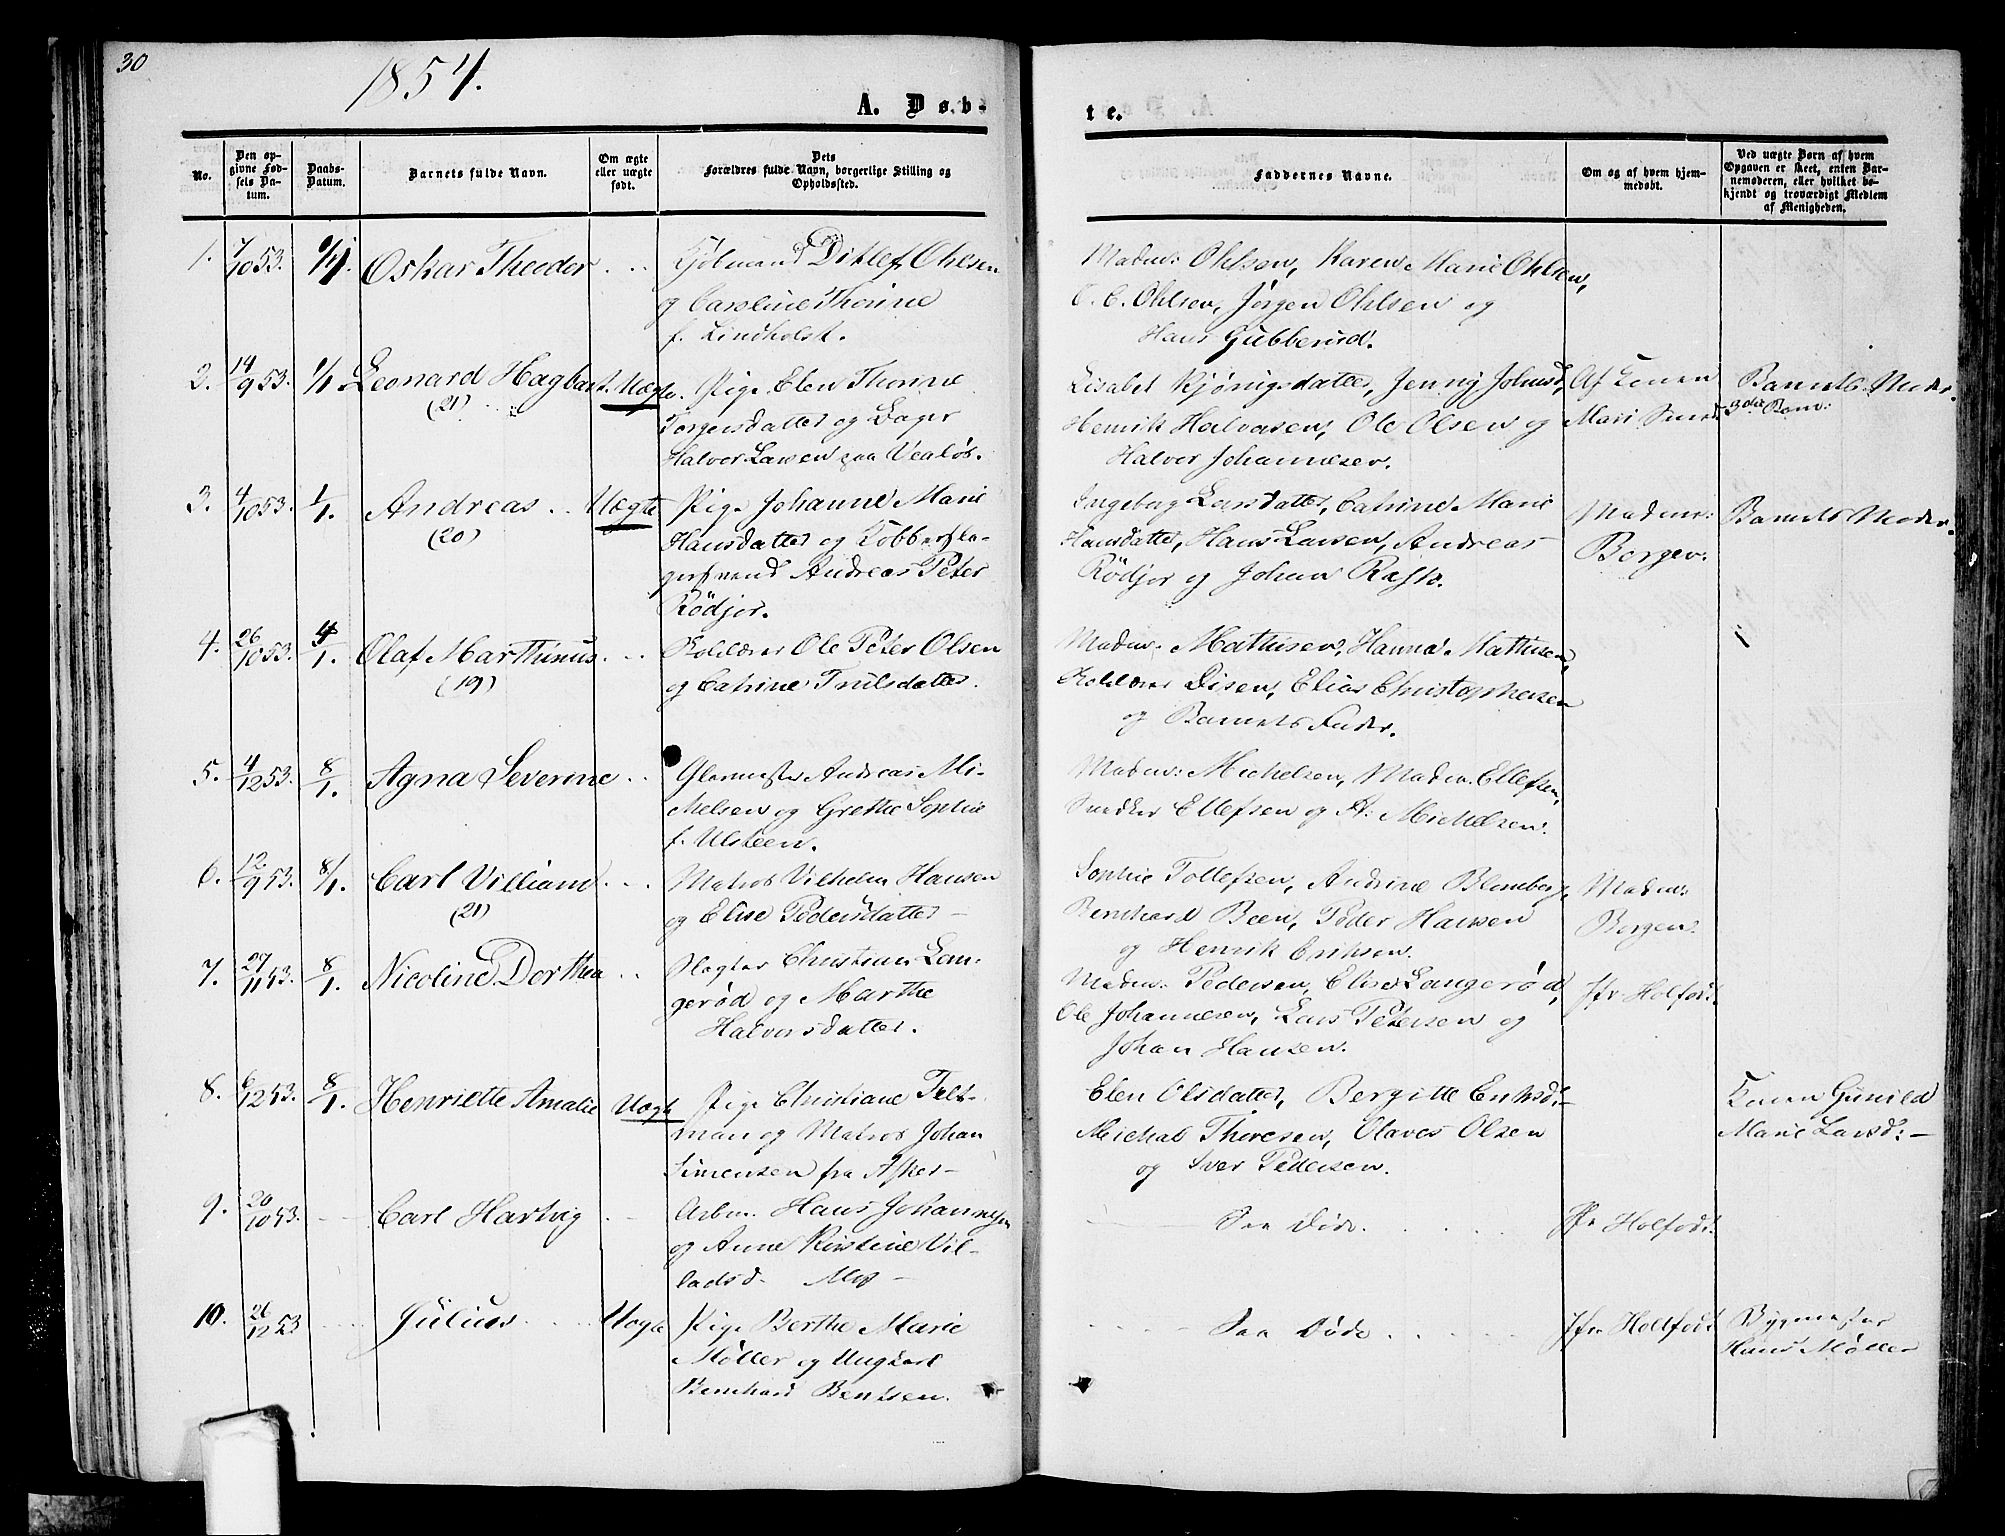 30
1854.
A. Døb-
te.
No.
Den op-
givne Fød-
sels Da-
tum.
Daabs-
Datum.
Barnets fulde Navn.
Om ægte
eller uægte
født.
Dets
Forældres fulde Navn, borgerlige Stilling og
Opholdssted.
Faddernes Navne.
Om og af hvem hjem-
medøbt.
Ved uægte Børn af hvem
Opgaven er skeet, enten Bar-
nemoderen, eller hvilket be-
kjendt og troværdigt Medlem
af Menigheden.
1. 7/10 53. 1/1. Oskar Theodor
Ditlef Ohlsen
og Caroline Thorine
f. Lindholst.
Madm: Ohlsen, Karen Marie Ohlsen,
C. C. Ohlsen, Jörgen Ohlsen og
Hans Gubberud.
2. 14/9 53. 1/1 Leonard Hagbart. Uægte.
(21)
Pige Elen Thorine
Torgersdatter og Bager
Halvor Larsen paa Vealös.
Lisabet Kjönigsdatter, Jenny Johnsd,
Henrik Halvorsen, Ole Olsen og
Halvor Johannesen.
Af
Mari
Barnets Moder.
3die Barn:
3. 4/10 53. 1/1. Andreas Uægte
(20)
Pige Johanne Marie
Hansdatter og Kobbersla-
gersvend Andreas Peter
Rödjor.
Ingeborg Larsdatter, Catrine Marie
Hansdatter, Hans Larsen, Andreas
Rödjor og Johan Rask.
Madm:
Borgen:
Barnets Moder.
4. 26/10 53. 4/1. Olaf Marthinus
(19)
Ole Peter Olsen
og Catrine Trulsdatter.
Madm. Mathisen, Hanna Mathisen,
Disen, Elias Christophersen
og Barnets Fader.
5. 4/12 53. 8/1. Agna Severine
Glarmester Andreas Mi-
chelsen og Grethe Sophie
f. Ulsteen.
Madm: Michelsen, Madm. Ellefsen,
Snedker Ellefsen og A. Michelsen.
6. 12/9 53. 8/1. Carl Villiam
(21)
Matros Vilhelm Hansen
og Elise Pedersdatter –
Sophie Tollefsen, Andrine Blomberg,
Bernhard Been, Peder Hansen
og Henrik Eriksen.
Madm:
Borgen.
7. 27/11 53. 8/1. Nicoline Dorthea
Slagter Christian Lan-
gerød og Marthe
Halvorsdatter.
Madm. Pedersen, Elise Langerød,
Ole Johannesen, Lars Petersen og
Johan Hansen.
Jfr Holfodt
8. 6/12 53. 8/1. Henriette Amalie Uægte
Pige Christiane Telt-
man og Matros Johan
Simensen fra Asker –
Elen Olsdatter, Bergitte Eriksd: –
Michal Thoresen, Olaves Olsen
og Iver Pedersen.
Karen Gunild
Marie Larsd: –
9. 20/10 53. Carl Hartvig
Arbm. Hans Johannesen
og Anne Kirstine Vil-
ladsd. Mos –
Saa Døde.
Jfr Holfodt
10. 26/12 53 Julius Uægte
Pige Berthe Marie
Møller og Ungkarl
Bernhard Bentsen.
Saa Døde
Jfr Holtfodt
Bygmester
Hans Møller